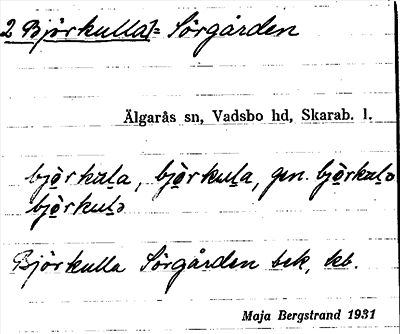 2 Björkulla]= Sörgården
Älgarås sn, Vadsbo hd, Skarab. l.
bjò̱rkuḻa, bjò̱rkuḻa, gen. bjò̱rkuḻə
bjò̱rkuḻə
Björkulla Sörgården bek, kb.
Maja Bergstrand 1931